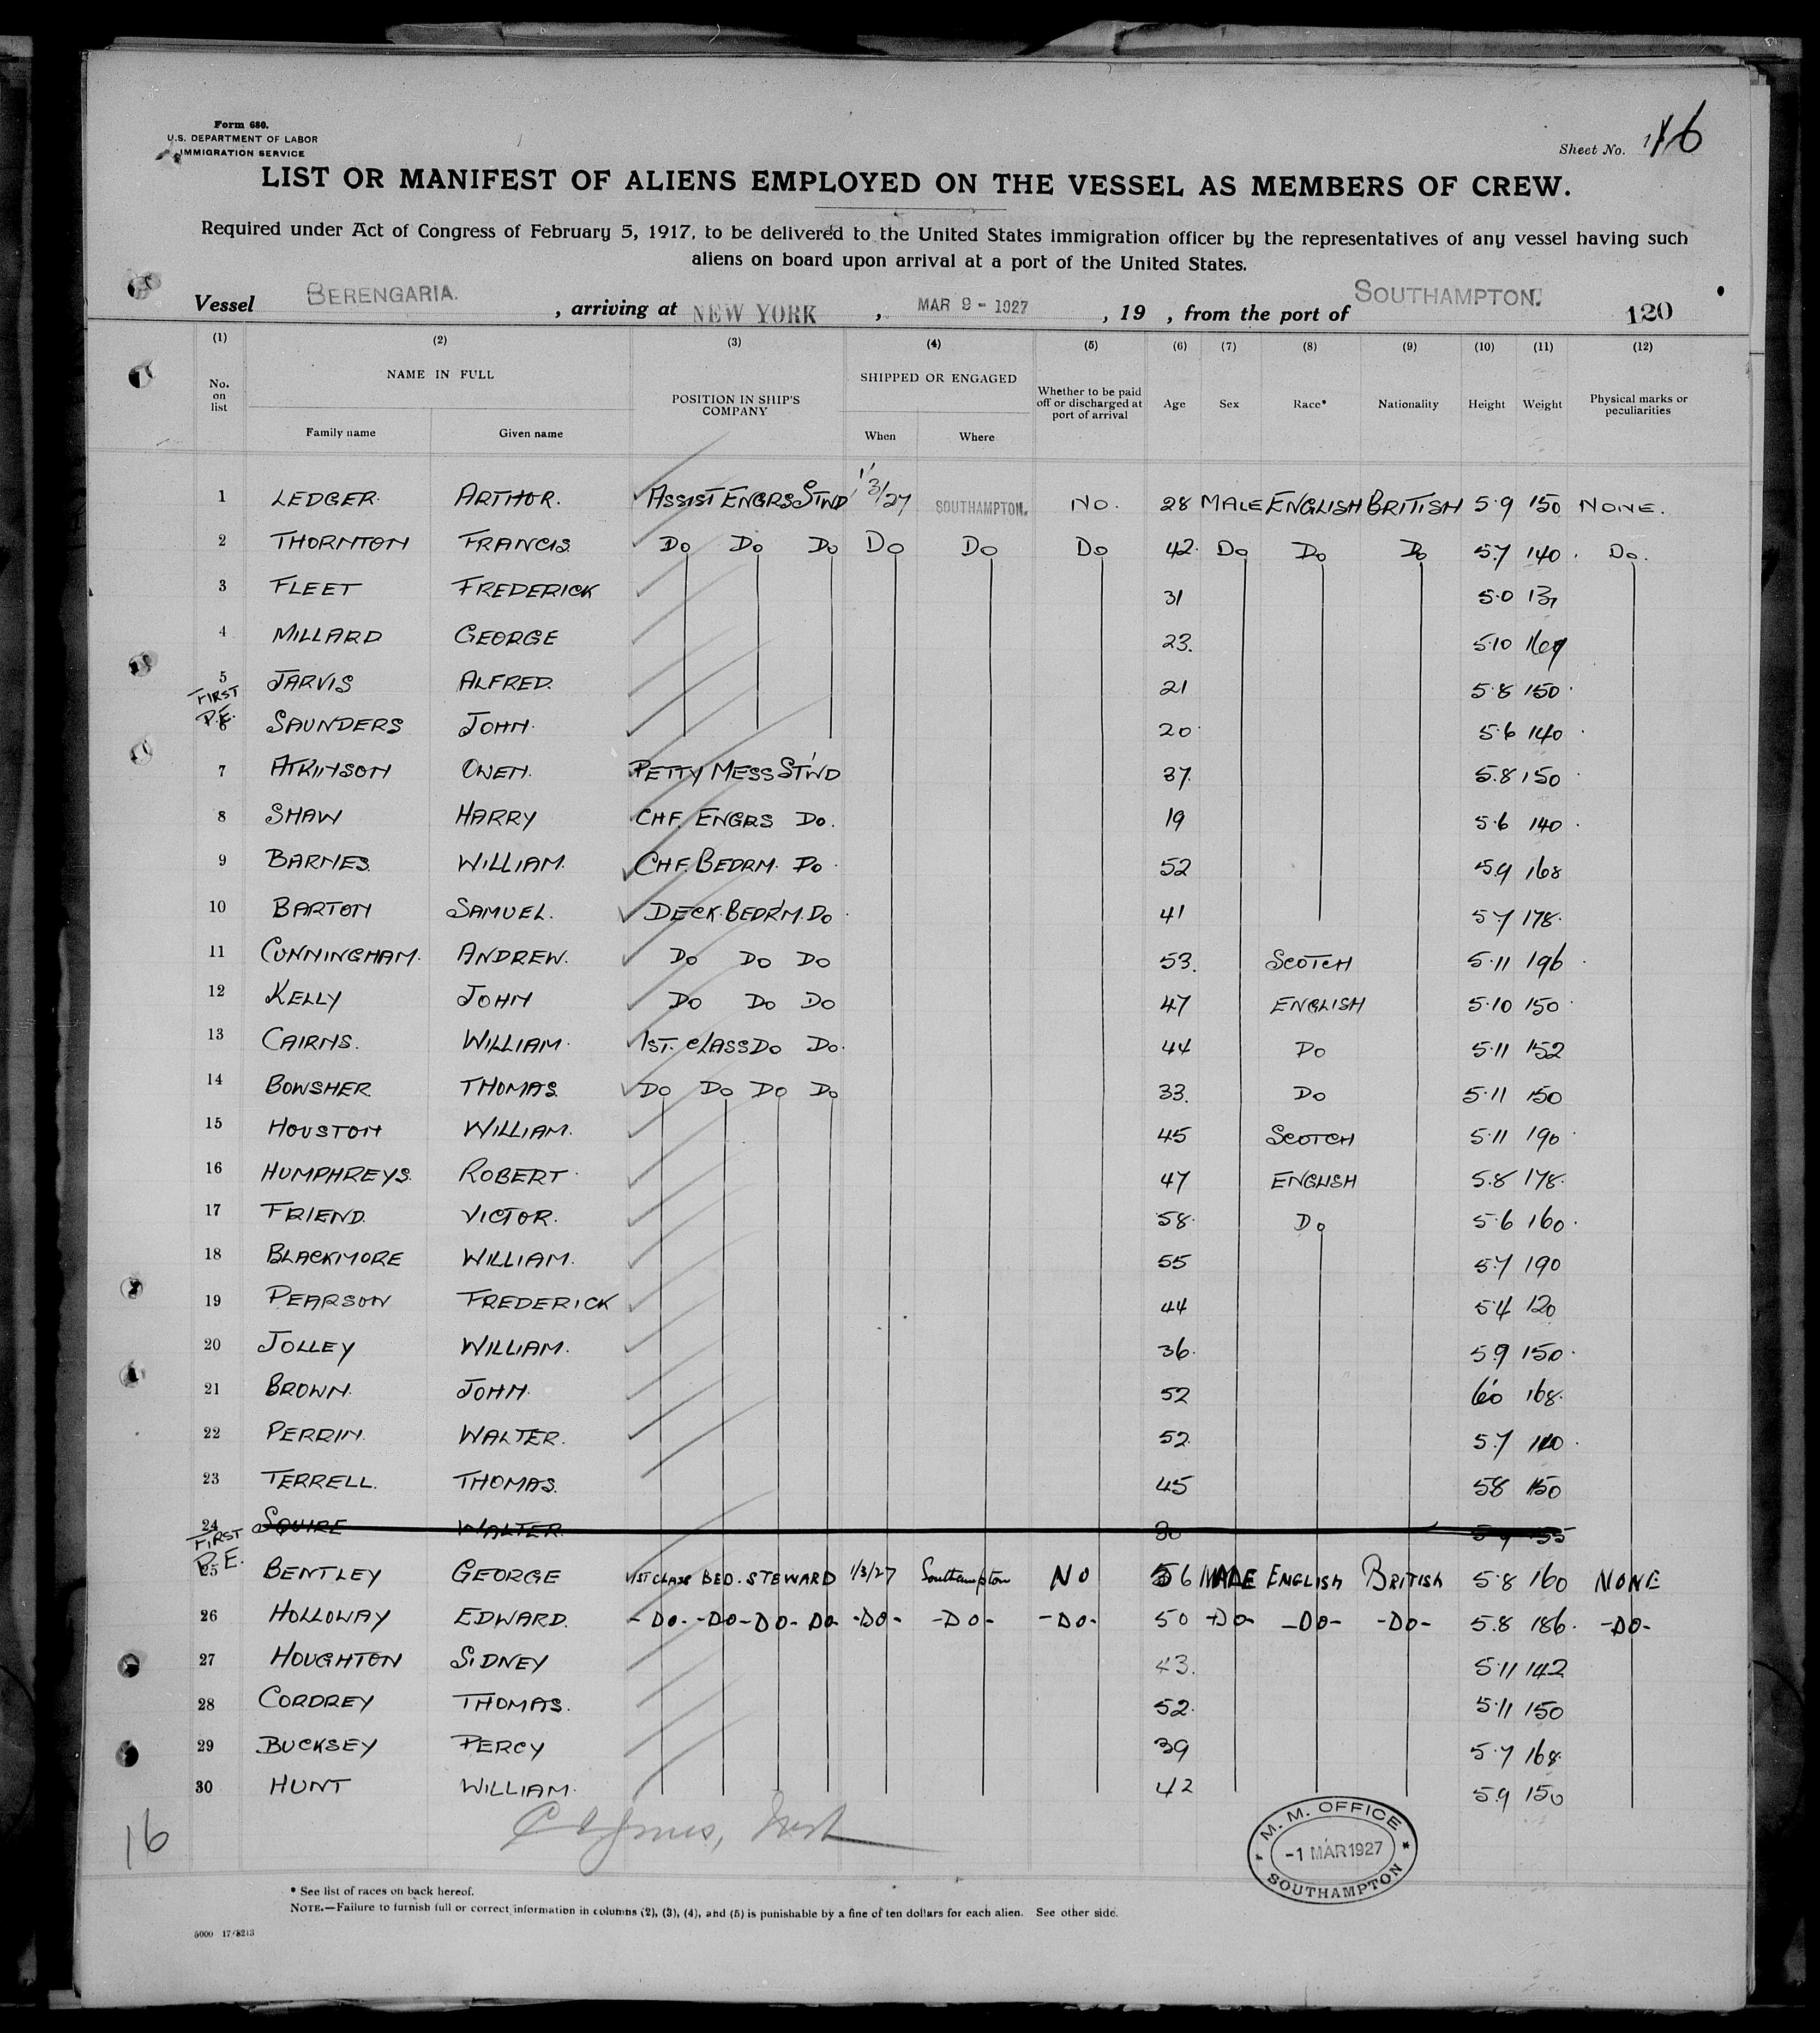 Form 680.
U.S. DEPARTMENT OF LABOR
IMMIGRATION SERVICE
Sheet No. 16
LIST OR MANIFEST OF ALIENS EMPLOYED ON THE VESSEL AS MEMBERS OF CREW.
Required under Act of Congress of February 5, 1917, to be delivered to the United States immigration officer by the representatives of any vessel having such
aliens on board upon arrival at a port of the United States.
Vessel BERENGARIA. , arriving at NEW YORK , MAR 9 - 1927 , 19 , from the port of SOUTHAMPTON. 120
(1) (2) (3) (4) (5) (6) (7) (8) (9) (10) (11) (12)
No. on list NAME IN FULL Family name Given name POSITION IN SHIP'S COMPANY SHIPPED OR ENGAGED When Where Whether to be paid off or discharged at port of arrival Age Sex Race* Nationality Height Weight Physical marks or peculiarities
1 LEDGER. ARTHOR. ASSIST ENGRS STWD 1/3/27 SOUTHAMPTON. NO. 28 MALE ENGLISH BRITISH 5.9 150 NONE.
2 THORNTON FRANCIS. DO DO DO DO DO DO 42. DO DO DO 5.7 140. DO.
3 FLEET FREDERICK 31 5.0
4 MILLARD GEORGE 23. 5.10
5 JARVIS ALFRED. 21 5.8 150.
FIRST P.E.
6 SAUNDERS JOHN. 20. 5.6 140.
7 ATKINSON OWEN. PETTY MESS ST'WD 37. 5.8 150.
8 SHAW HARRY CHF. ENGRS DO. 19 5.6 140.
9 BARNES. WILLIAM. CHF. BEDRM. DO. 52 5.9 168
10 BARTON SAMUEL. DECK. BEDR'M. DO. 41 5.7 178.
11 CUNNINGHAM. ANDREW. DO DO DO 53. SCOTCH 5.11 196.
12 KELLY JOHN DO DO DO 47 ENGLISH 5.10 150.
13 CAIRNS. WILLIAM. 1ST. CLASS DO DO. 44 DO 5.11 152
14 BOWSHER. THOMAS. DO DO DO DO 33. DO 5.11 150
15 HOUSTON WILLIAM. 45 SCOTCH 5.11 190.
16 HUMPHREYS. ROBERT. 47 ENGLISH 5.8 178.
17 FRIEND. VICTOR. 58. DO 5.6 160.
18 BLACKMORE WILLIAM. 55 5.7 190
19 PEARSON FREDERICK 44 5.4 120
20 JOLLEY WILLIAM. 36. 5.9 150.
21 BROWN. JOHN. 52 6.0 168.
22 PERRIN. WALTER. 52. 5.7
23 TERRELL. THOMAS. 45 5.8 150
24 SQUIRE WALTER. 30 5.9 155
FIRST P.E.
25 BENTLEY GEORGE 1ST CLASS BED. STEWARD 1/3/27 Southampton NO 56 MALE ENGLISH BRITISH 5.8 160 NONE
26 HOLLOWAY EDWARD. -DO- -DO- DO- DO- -DO- -DO- -DO- 50 -DO- -DO- -DO- 5.8 186. -DO-
27 HOUGHTON SIDNEY 43. 5.11 142
28 CORDREY THOMAS. 52. 5.11 150
29 BUCKSEY PERCY 39 5.7 168.
30 HUNT WILLIAM. 42 5.9 150
16
M. M. OFFICE
-1 MAR 1927
SOUTHAMPTON
* See list of races on back hereof.
NOTE.—Failure to furnish full or correct information in columns (2), (3), (4), and (5) is punishable by a fine of ten dollars for each alien. See other side.